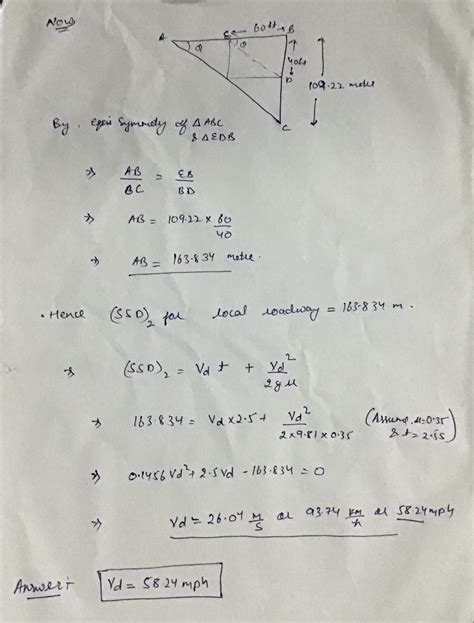 Now
A E ← 60 ft → B
θ θ
40ft
D
109.22 metre
C
By, Symmetry of △ ABC
& △EDB
⇒ AB/BC = EB/BD
⇒ AB = 109.22 × 60/40
⇒ AB = 163.834 metre.
• Hence (SSD)₂ for local roadway = 163.834 m.
⇒ (SSD)₂ = Vd t + Vd²/2gμ
⇒ 163.834 = Vd × 2.5 + Vd²/2×9.81×0.35 (Assume, μ=0.35 & t = 2.5s)
⇒ 0.1456 Vd² + 2.5 Vd - 163.834 = 0
⇒ Vd = 26.04 M/S or 93.74 KM/h or 58.24 mph
Answer÷ Vd = 58.24 mph